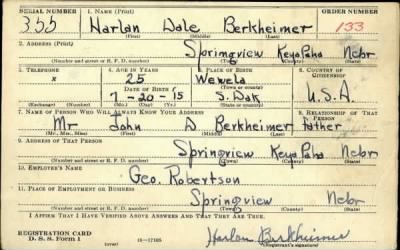 SERIAL NUMBER 1. NAME (Print) ORDER NUMBER
355 Harlan Dale Berkheimer 133
(First) (Middle) (Last)
2. ADDRESS (Print)
Springview Keya Paha Nebr
(Number and street or R. F. D. number) (Town) (County) (State)
3. TELEPHONE 4. AGE IN YEARS 5. PLACE OF BIRTH 6. COUNTRY OF CITIZENSHIP
x 25 Wewela
DATE OF BIRTH (Town or county)
7-20-15 S. Dak U.S.A.
(Exchange) (Number) (Mo.) (Day) (Yr.) (State or country)
7. NAME OF PERSON WHO WILL ALWAYS KNOW YOUR ADDRESS 8. RELATIONSHIP OF THAT PERSON
Mr John D Berkheimer father
(Mr., Mrs., Miss) (First) (Middle) (Last)
9. ADDRESS OF THAT PERSON
Springview Keya Paha Nebr
(Number and street or R. F. D. number) (Town) (County) (State)
10. EMPLOYER'S NAME
Geo. Robertson
11. PLACE OF EMPLOYMENT OR BUSINESS
Springview Nebr
(Number and street or R. F. D. number) (Town) (County) (State)
I AFFIRM THAT I HAVE VERIFIED ABOVE ANSWERS AND THAT THEY ARE TRUE.
REGISTRATION CARD
D. S. S. Form 1 16—17105 Harlan Berkheimer
(Registrant's signature)